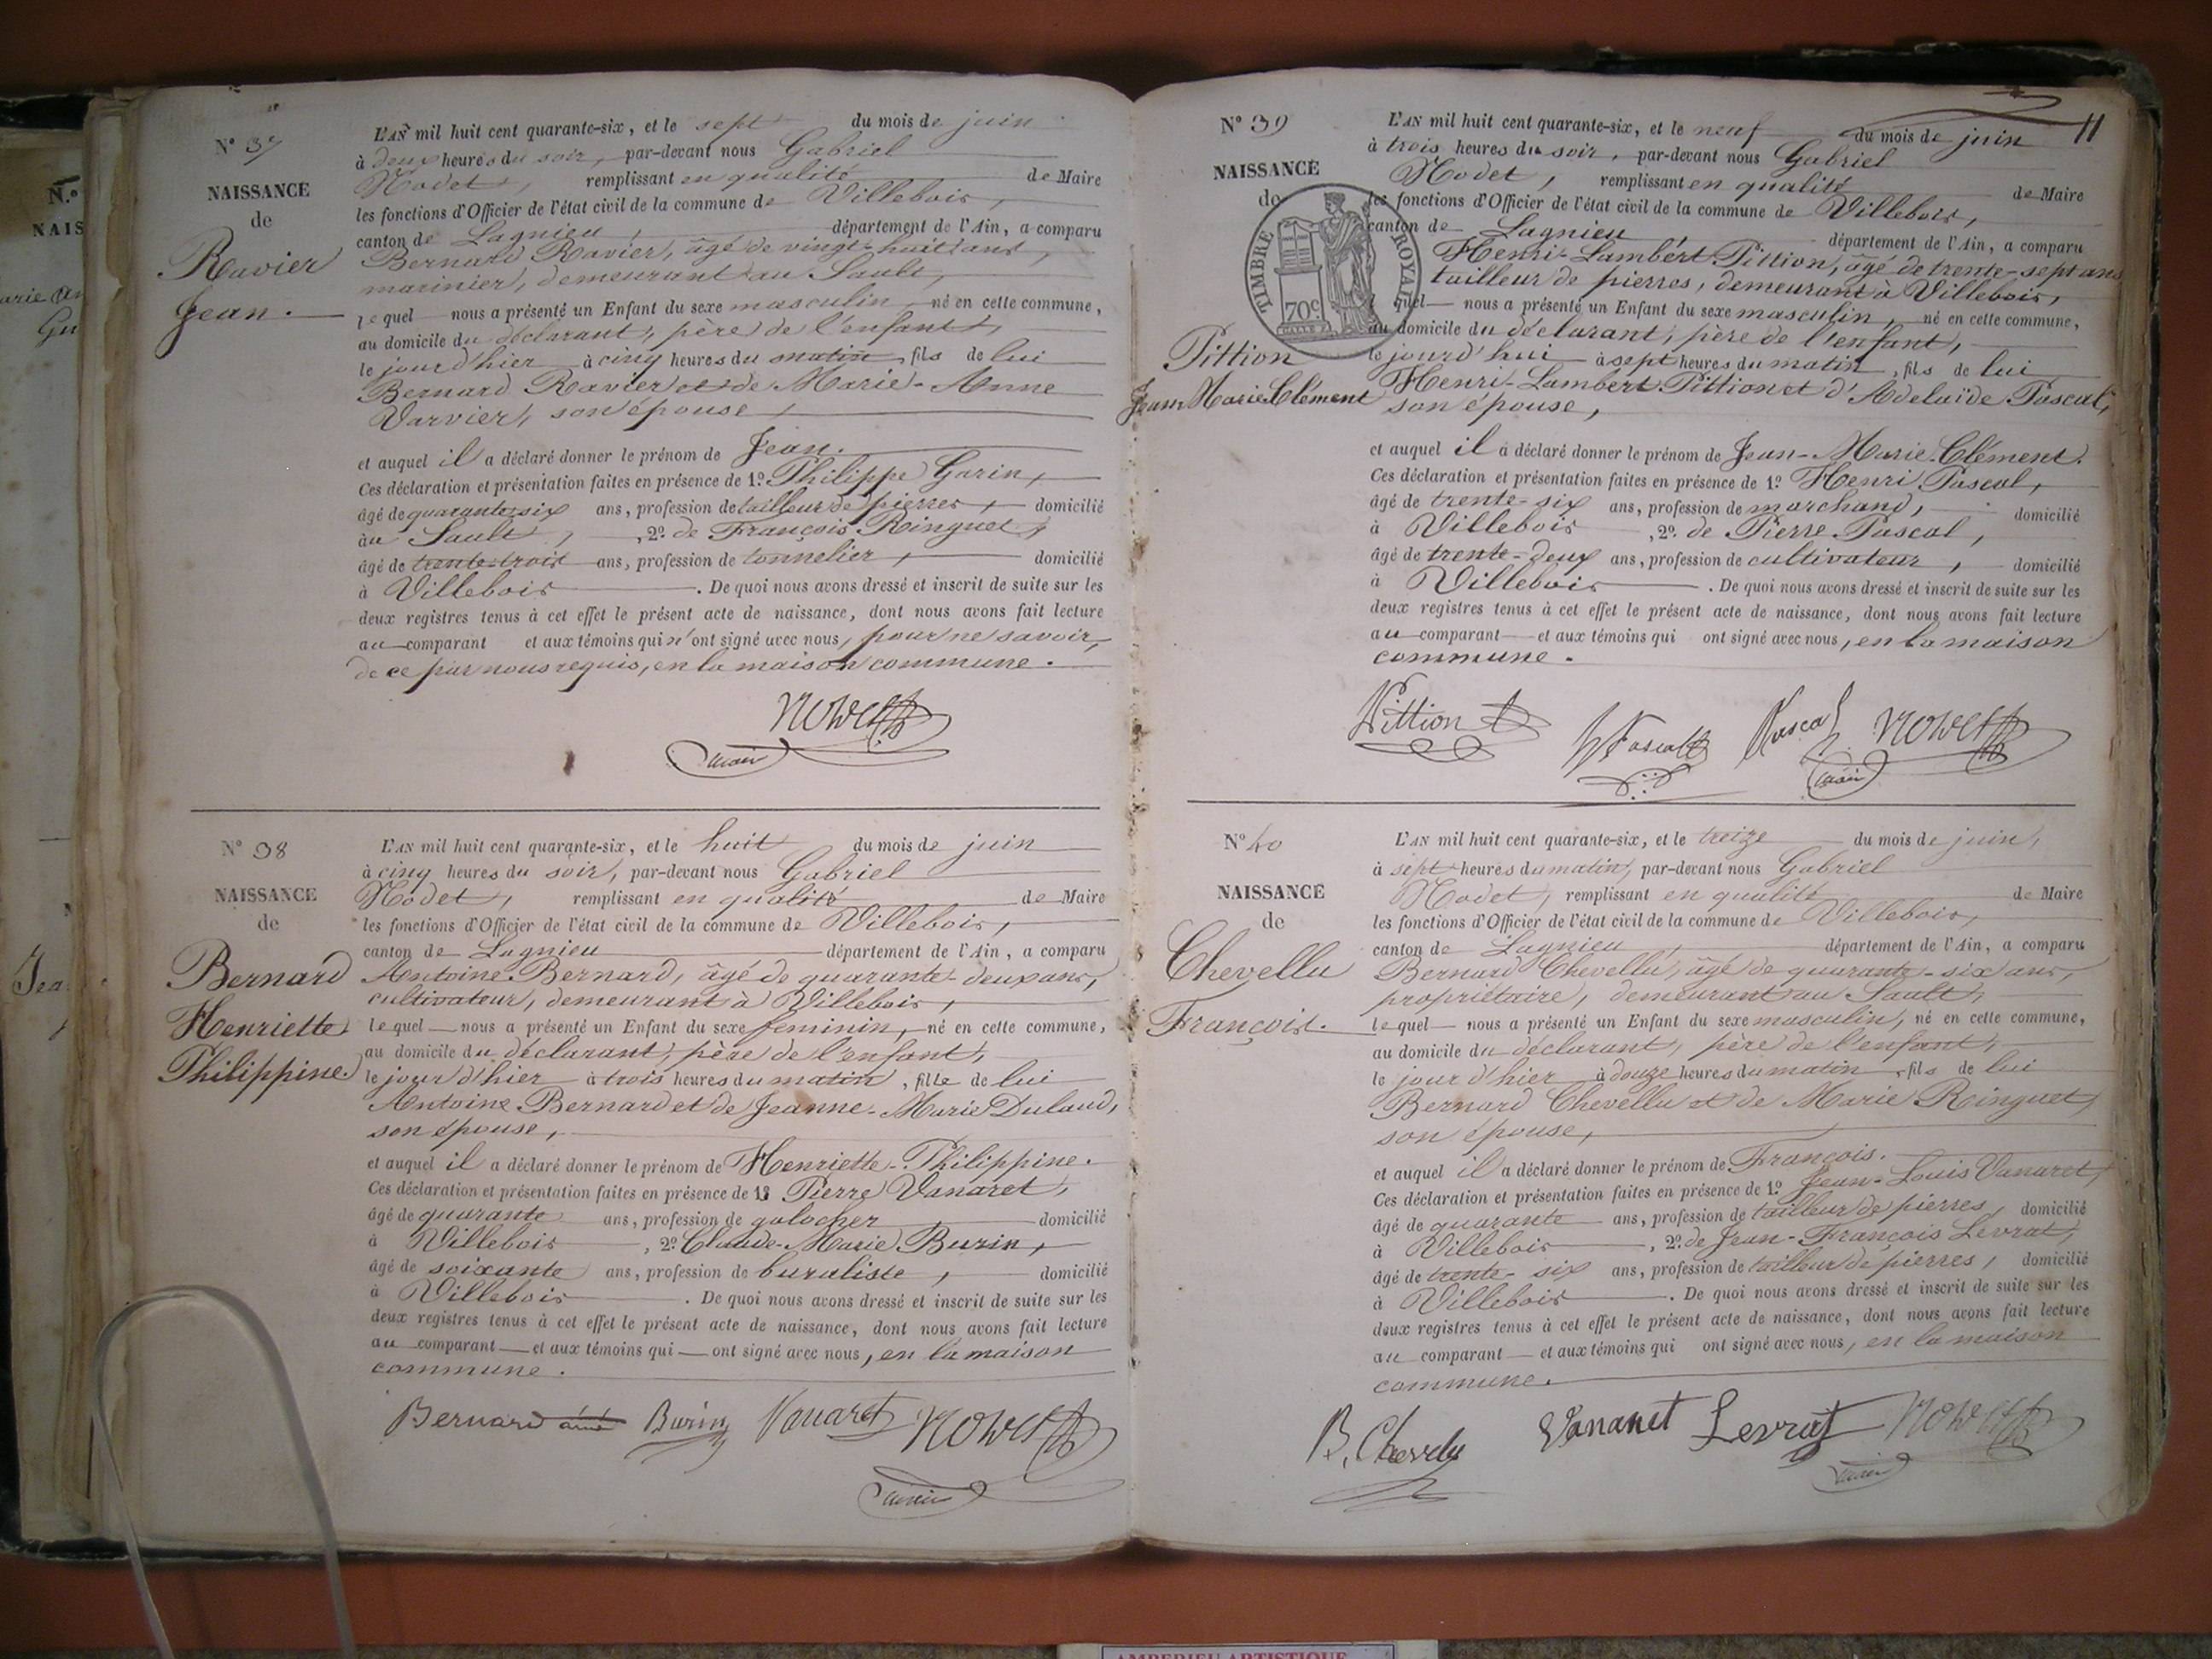 N° 37
NAISSANCE
de
Ravier
Jean.
L'AN mil huit cent quarante-six, et le sept du mois de juin
à deux heures du soir, par-devant nous Gabriel
Nodet, remplissant en qualité de Maire
les fonctions d'Officier de l'état civil de la commune de Villebois,
canton de Lagnieu, département de l'Ain, a comparu
Bernard Ravier, âgé de vingt-huit ans,
marinier, demeurant au Sault,
lequel nous a présenté un Enfant du sexe masculin, né en cette commune,
au domicile du déclarant, père de l'enfant,
le jour d'hier à cinq heures du matin, fils de lui
Bernard Ravier et de Marie-Anne
Varvier, son épouse,
et auquel il a déclaré donner le prénom de Jean.
Ces déclaration et présentation faites en présence de 1° Philippe Garin,
âgé de quarante-six ans, profession de tailleur de pierres, domicilié
au Sault, 2° de François Ringuet,
âgé de trente-trois ans, profession de tonnelier, domicilié
à Villebois. De quoi nous avons dressé et inscrit de suite sur les
deux registres tenus à cet effet le présent acte de naissance, dont nous avons fait lecture
au comparant et aux témoins qui n'ont signé avec nous, pour ne savoir,
de ce par nous requis, en la maison commune.
Nodet
maire
N° 38
NAISSANCE
de
Bernard
Henriette
Philippine.
L'AN mil huit cent quarante-six, et le huit du mois de juin
à cinq heures du soir, par-devant nous Gabriel
Nodet, remplissant en qualité de Maire
les fonctions d'Officier de l'état civil de la commune de Villebois,
canton de Lagnieu département de l'Ain, a comparu
Antoine Bernard, âgé de quarante-deux ans,
cultivateur, demeurant à Villebois,
lequel nous a présenté un Enfant du sexe feminin, né en cette commune,
au domicile du déclarant, père de l'enfant,
le jour d'hier à trois heures du matin, fille de lui
Antoine Bernard et de Jeanne-Marie Dulaud,
son épouse,
et auquel il a déclaré donner le prénom de Henriette-Philippine.
Ces déclaration et présentation faites en présence de 1° Pierre Vanaret,
âgé de quarante ans, profession de galocher domicilié
à Villebois, 2° Claude-Marie Burin,
âgé de soixante ans, profession de buraliste, domicilié
à Villebois. De quoi nous avons dressé et inscrit de suite sur les
deux registres tenus à cet effet le présent acte de naissance, dont nous avons fait lecture
au comparant et aux témoins qui ont signé avec nous, en la maison
commune.
Bernard ainé Burin Vanaret Nodet
maire
11
N° 39
NAISSANCE
de
TIMBRE ROYAL
70c
Pittion
Jean Marie Clément
L'AN mil huit cent quarante-six, et le neuf du mois de juin
à trois heures du soir, par-devant nous Gabriel
Nodet, remplissant en qualité de Maire
les fonctions d'Officier de l'état civil de la commune de Villebois,
canton de Lagnieu, département de l'Ain, a comparu
Henri-Lambert Pittion, âgé de trente-sept ans
tailleur de pierres, demeurant à Villebois,
lequel nous a présenté un Enfant du sexe masculin, né en cette commune,
au domicile du déclarant, père de l'enfant,
le jourd'hui à sept heures du matin, fils de lui
Henri-Lambert Pittion et d'Adelaïde Pascal,
son épouse,
et auquel il a déclaré donner le prénom de Jean-Marie-Clément.
Ces déclaration et présentation faites en présence de 1° Henri Pascal,
âgé de trente-six ans, profession de marchand, domicilié
à Villebois, 2° de Pierre Pascal,
âgé de trente-deux ans, profession de cultivateur, domicilié
à Villebois. De quoi nous avons dressé et inscrit de suite sur les
deux registres tenus à cet effet le présent acte de naissance, dont nous avons fait lecture
au comparant et aux témoins qui ont signé avec nous, en la maison
commune.
Pittion H Pascal Pascal Nodet
maire
N° 40
NAISSANCE
de
Chevellu
François.
L'AN mil huit cent quarante-six, et le treize du mois de juin,
à sept heures du matin, par-devant nous Gabriel
Nodet, remplissant en qualité de Maire
les fonctions d'Officier de l'état civil de la commune de Villebois,
canton de Lagnieu, département de l'Ain, a comparu
Bernard Chevellu, âgé de quarante-six ans,
propriétaire, demeurant au Sault,
lequel nous a présenté un Enfant du sexe masculin, né en cette commune,
au domicile du déclarant, père de l'enfant,
le jour d'hier à douze heures du matin, fils de lui
Bernard Chevellu et de Marie Ringuet,
son épouse,
et auquel il a déclaré donner le prénom de François.
Ces déclaration et présentation faites en présence de 1° Jean-Louis Vanaret,
âgé de quarante ans, profession de tailleur de pierres, domicilié
à Villebois, 2° de Jean-François Levrat,
âgé de trente-six ans, profession de tailleur de pierres, domicilié
à Villebois. De quoi nous avons dressé et inscrit de suite sur les
deux registres tenus à cet effet le présent acte de naissance, dont nous avons fait lecture
au comparant et aux témoins qui ont signé avec nous, en la maison
commune.
B. Chevelu Vananet Levrat Nodet
maire
AMBERIEU ARTISTIQUE